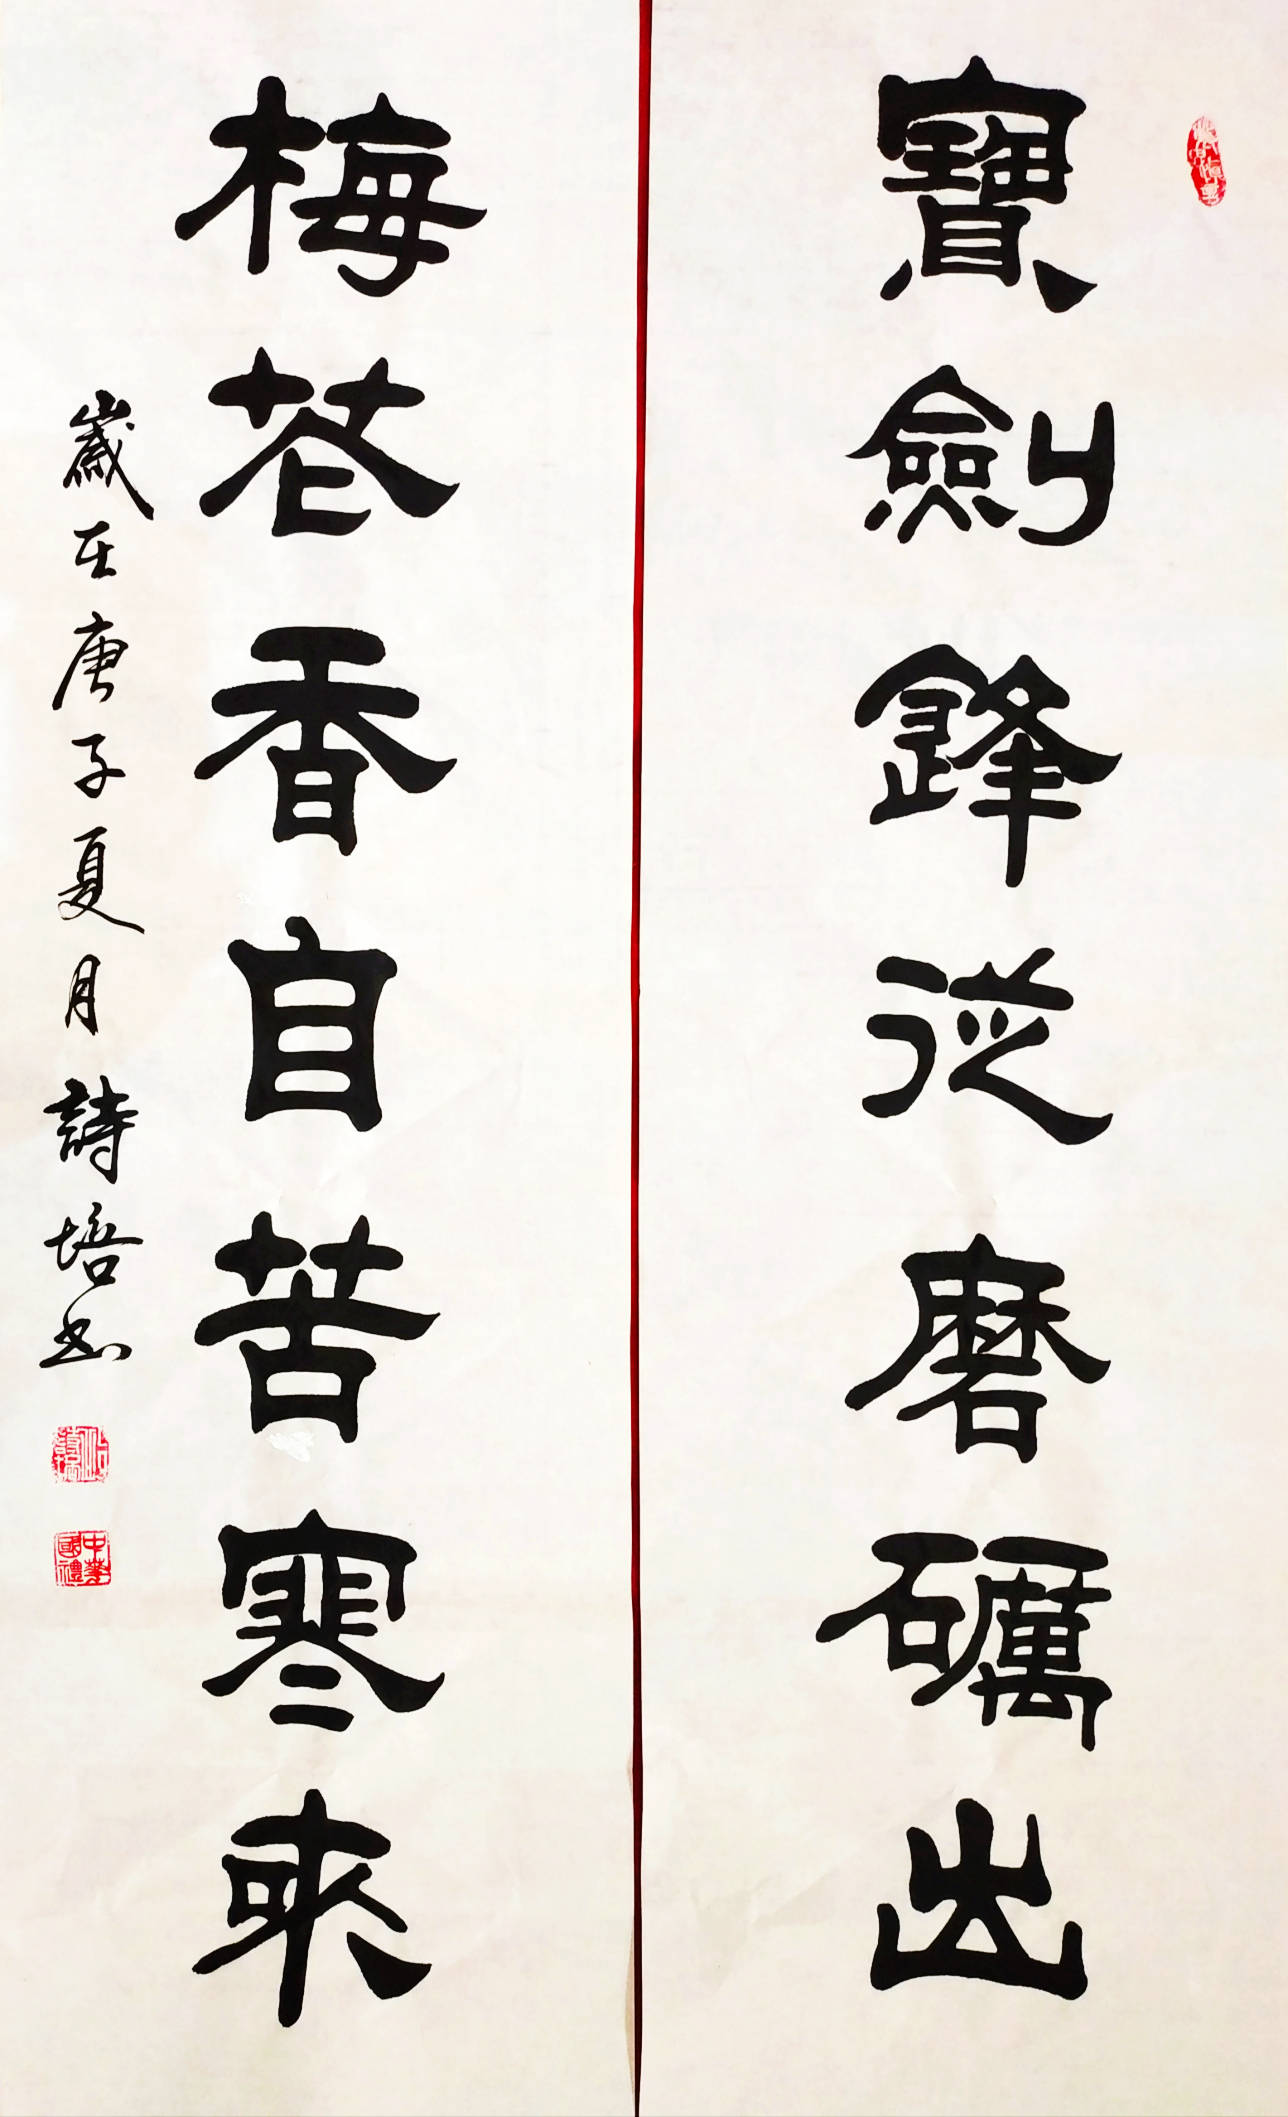 寶劍鋒從磨礪出
梅花香自苦寒來
歲在庚子夏月詩培书
中華國禮